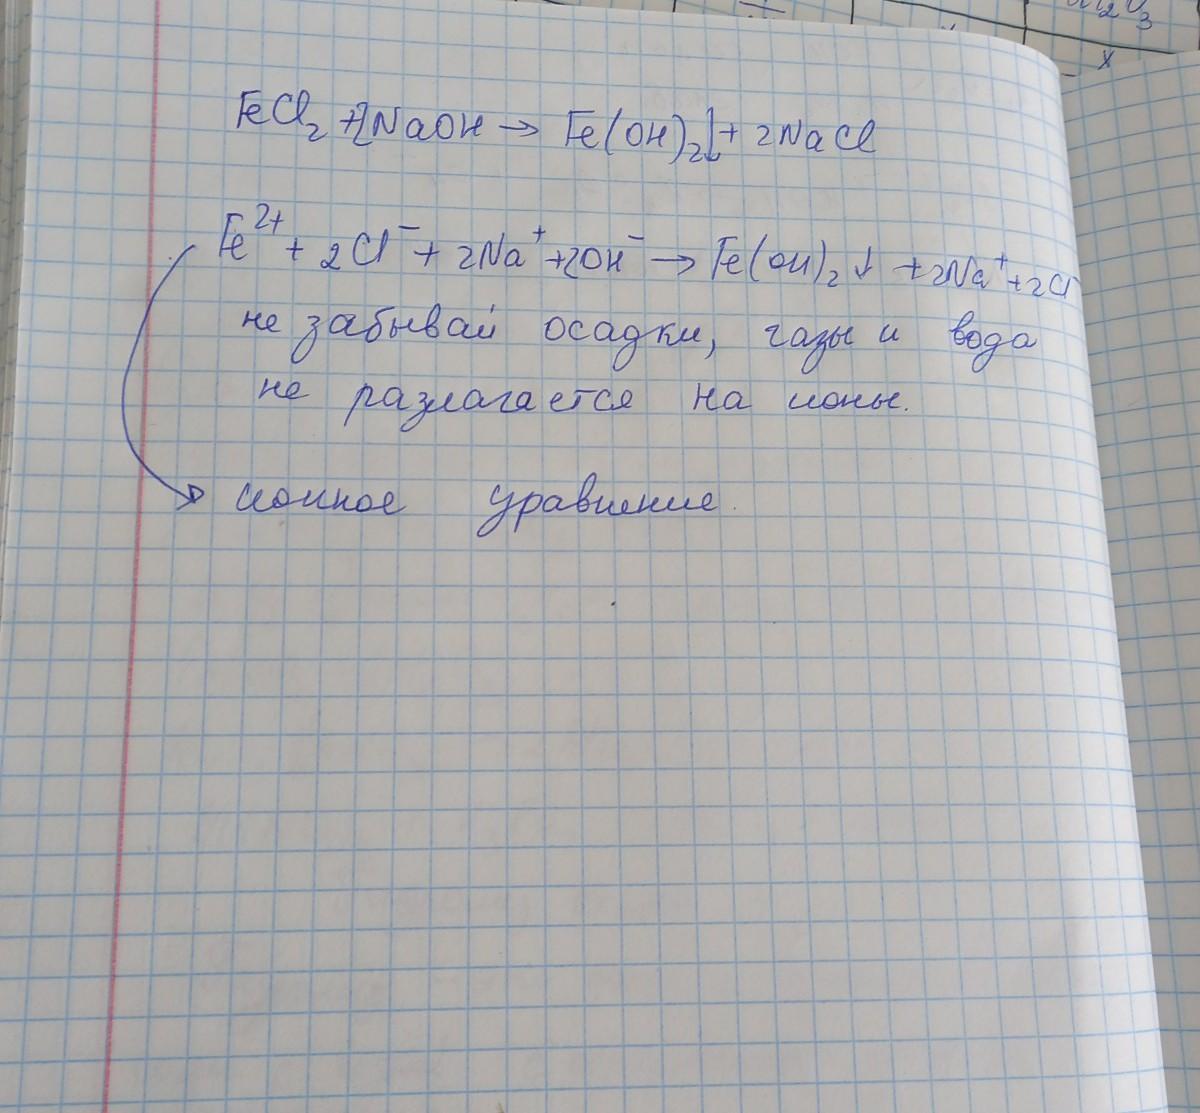 FeCl₂ + 2NaOH → Fe(OH)₂↓ + 2NaCl
Fe²⁺ + 2Cl⁻ + 2Na⁺ + 2OH⁻ → Fe(OH)₂↓ + 2Na⁺ + 2Cl⁻
не забывай осадки, газы и вода
не разлагается на ионы.
ионное уравнение.